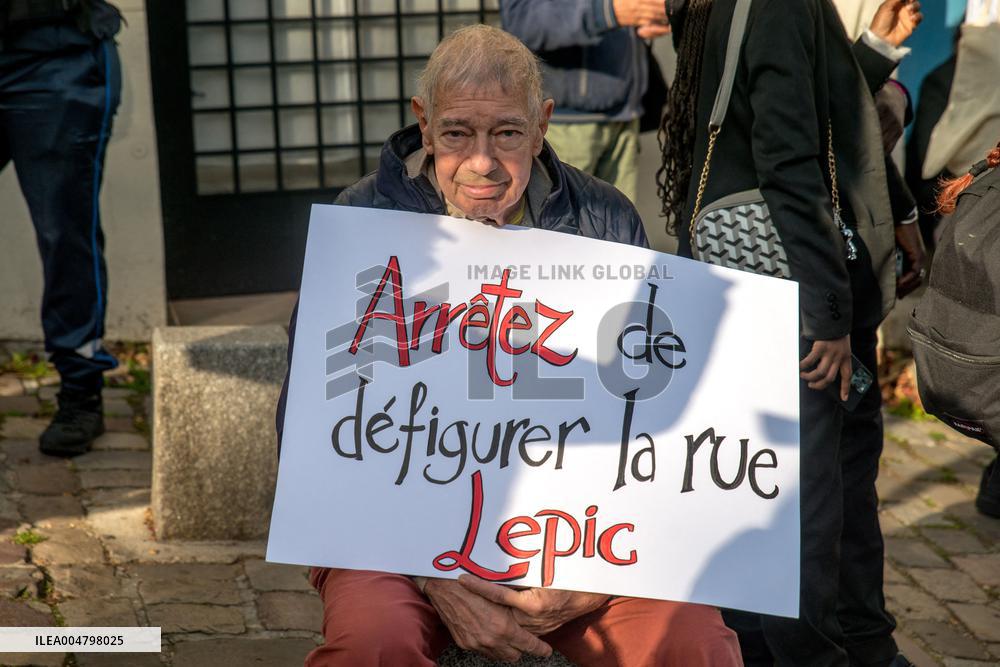 IMAGE LINK GLOBAL
ILG
Arrêtez de
défigurer la rue
Lepic
ILEA004798025